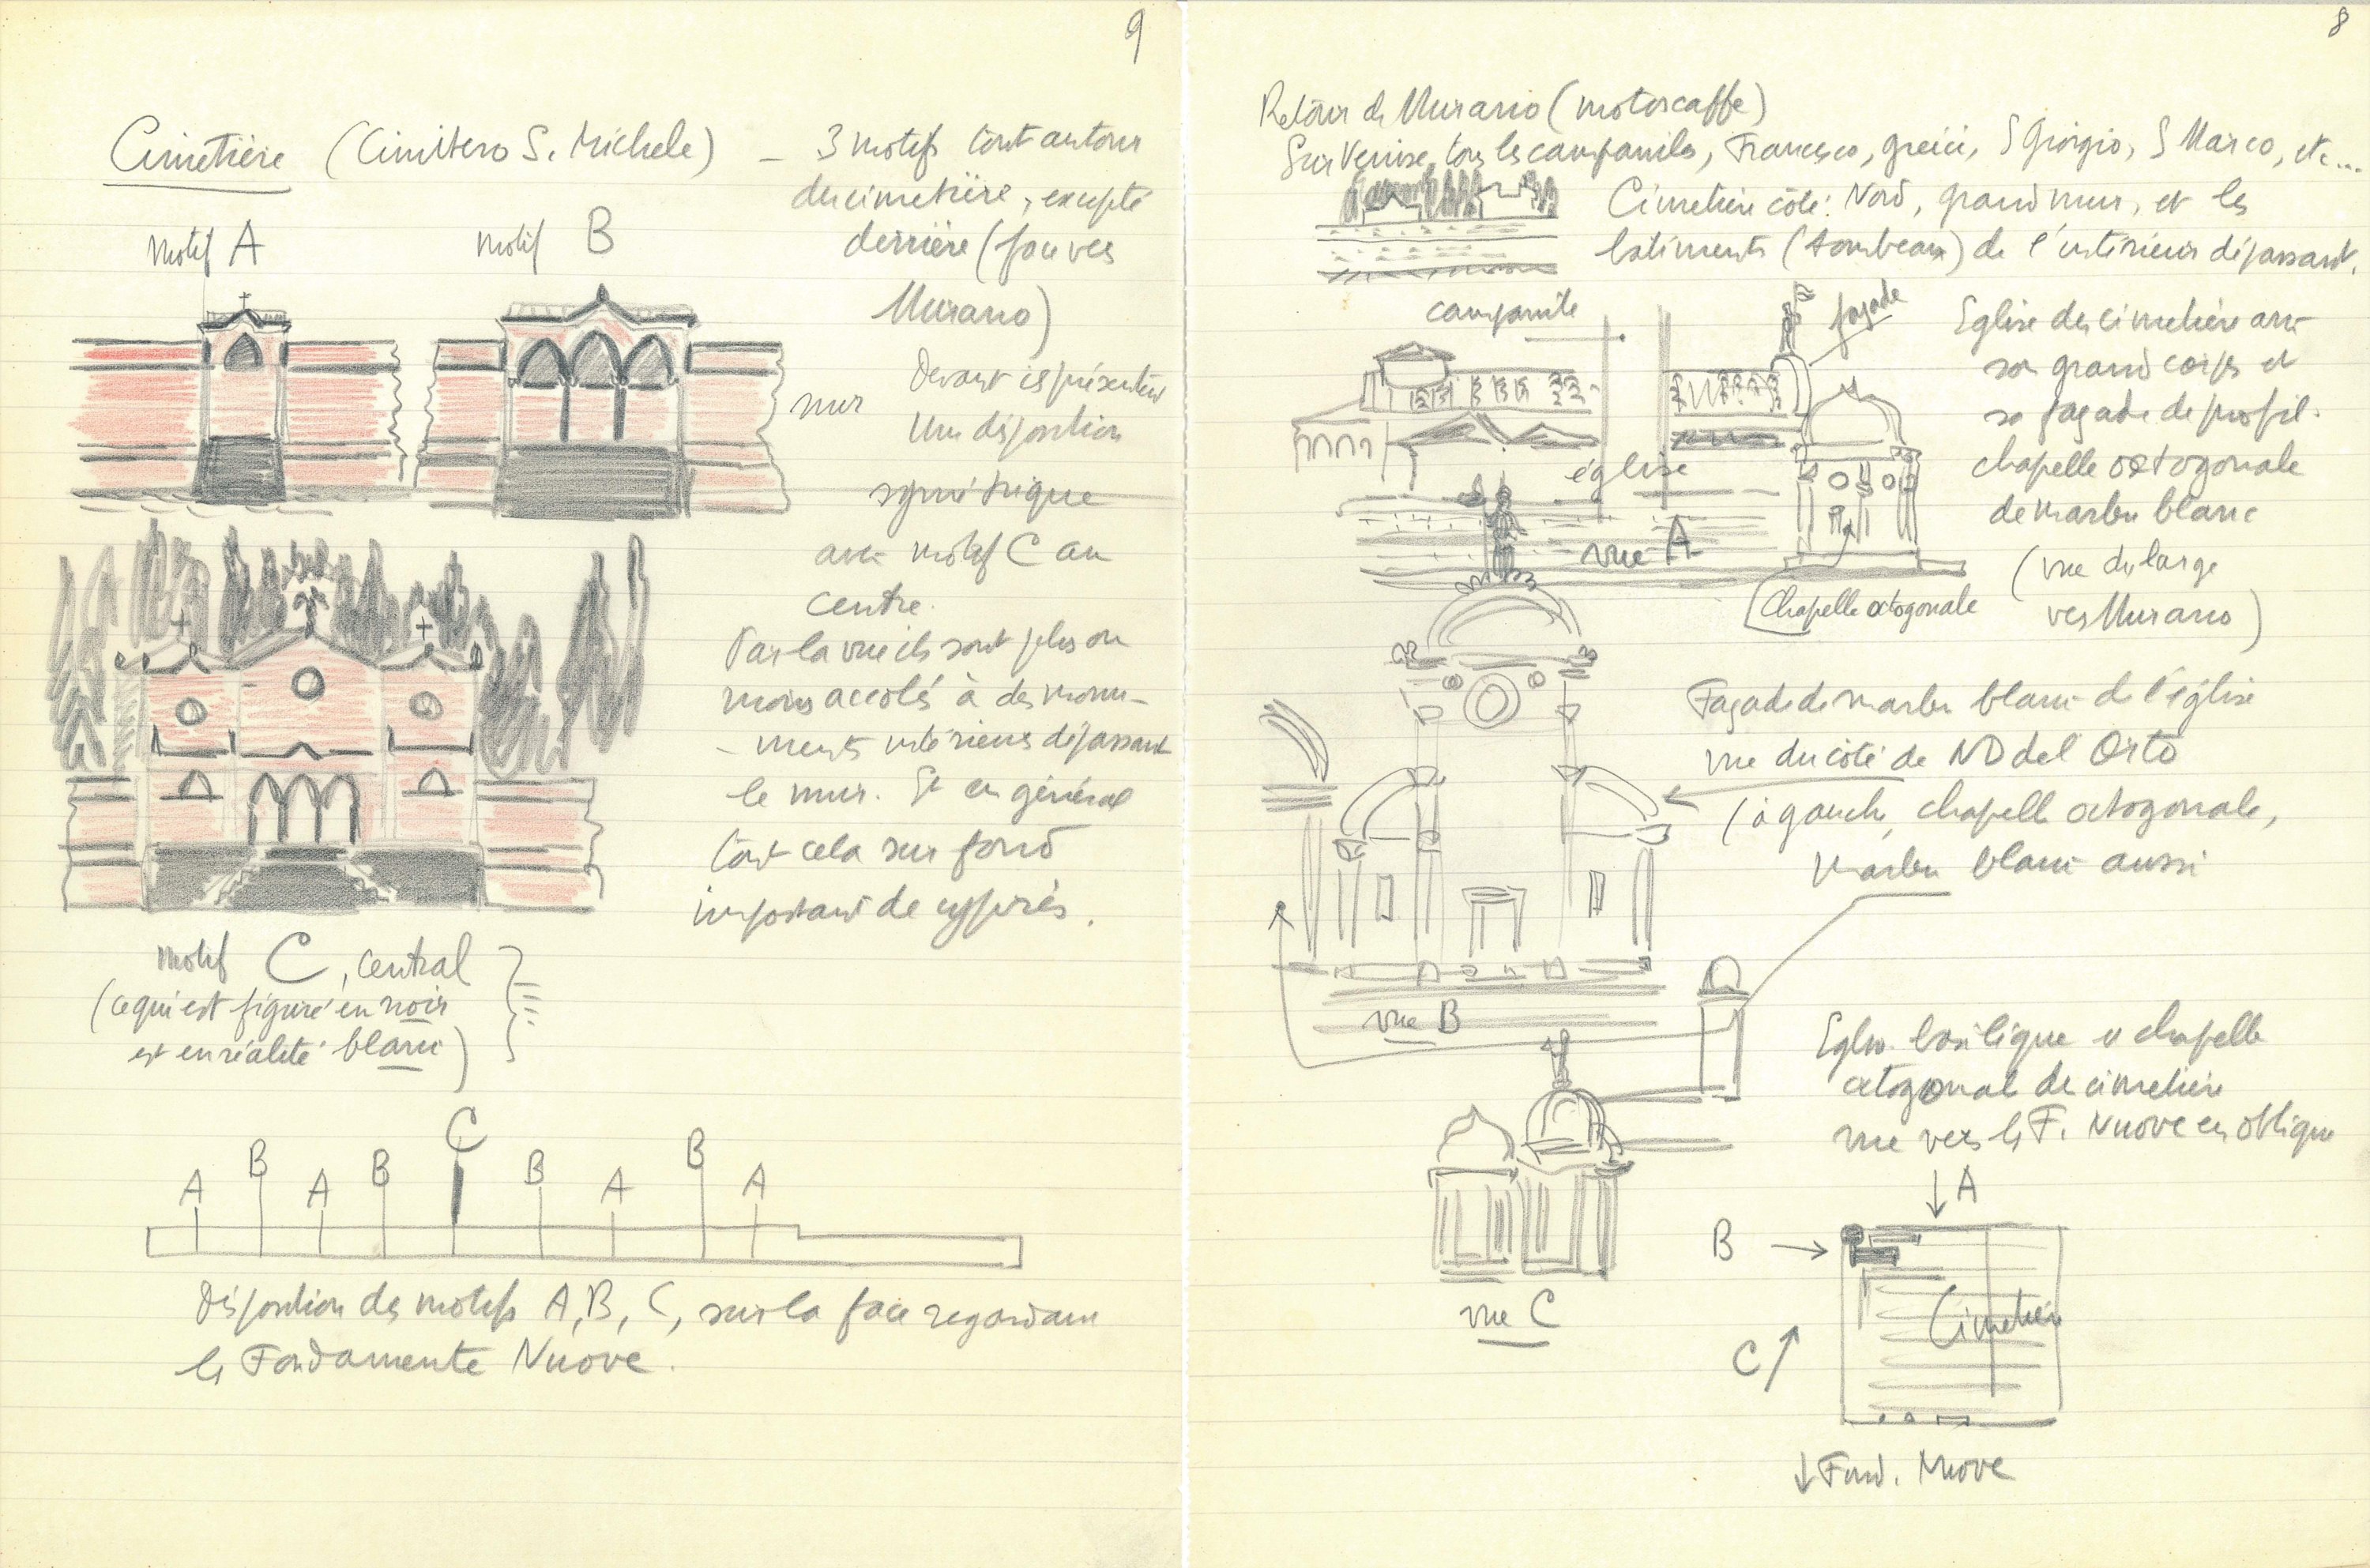 9
Cimetière (Cimitero S. Michele) _ 3 motifs tout autour
du cimetière, excepté
derrière (face vers
Murano)
motif A
motif B
mur
Devant ils présentent
une disposition
symétrique
avec motif C au
centre.
Par la vue ils sont plus ou
moins accolés à des monu-
- ments intérieurs dépassant
le mur. Et en général
tout cela sur fond
important de cyprès.
motif C, central
(ce qui est figuré en noir
est en réalité blanc)
A B A B C B A B A
Disposition des motifs A, B, C, sur la face regardant
les Fondamente Nuove.
8
Retour de Murano (motoscaffe)
Sur Venise, tous les campaniles, Francesco, greici, S Giorgio, S Marco, etc...
Cimetière côté Nord, grand mur, et les
bâtiments (tombeaux) de l'intérieur dépassant.
campanile
façade
église
vue A
Chapelle octogonale
Eglise du cimetière avec
son grand corps et
sa façade de profil.
chapelle octogonale
de marbre blanc
(vue du large
vers Murano)
Façade de marbre blanc de l'église
vue du côté de ND del Orto
(à gauche, chapelle octogonale,
marbre blanc aussi
vue B
Eglise basilique et chapelle
octogonale du cimetière
vue vers les F. Nuove en oblique
vue C
A
B
Cimetière
C
Fond. Nuove